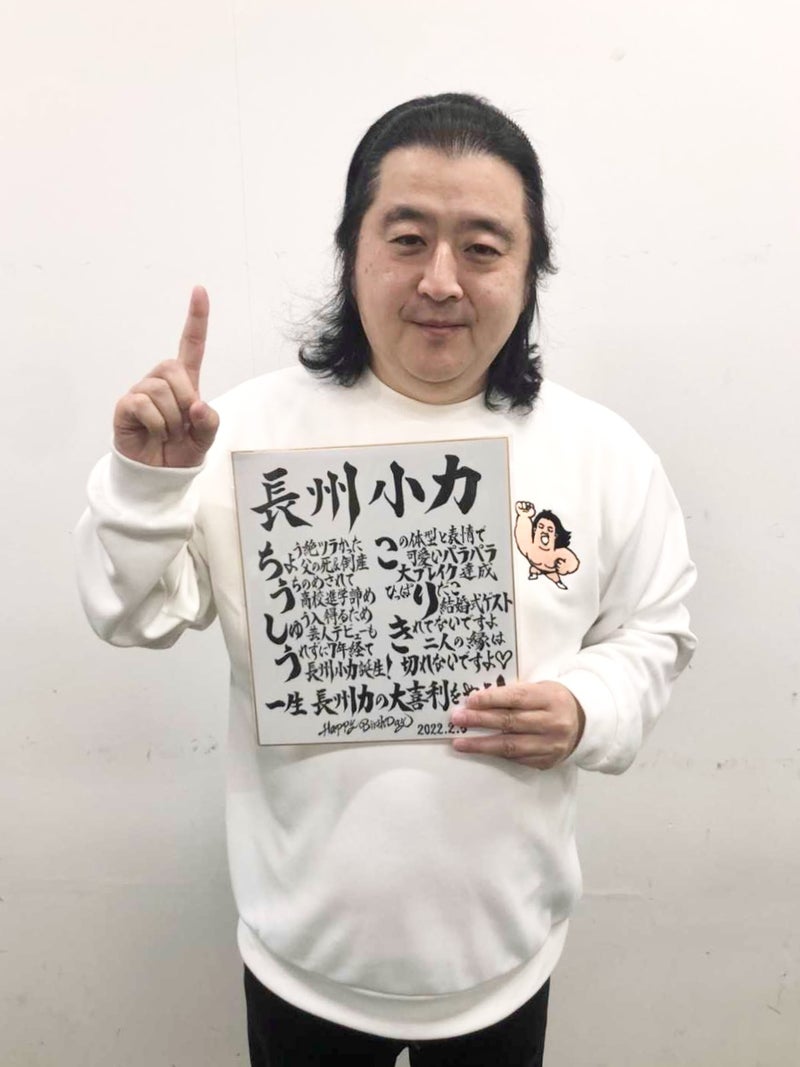 長州小力
ちょう絶ツラかった
父の死&倒産
うちのめされて
高校進学諦め
しゅう入得るため
芸人デビューも
うれずに7年経て
長州小力誕生!
この体型と表情で
可愛いパラパラ
大ブレイク達成
ひっぱりだこ
結婚式ゲスト
きれてないですよ
二人の縁は
切れないですよ♡
一生長州力の大喜利を
Happy BirthDay
2022.2.